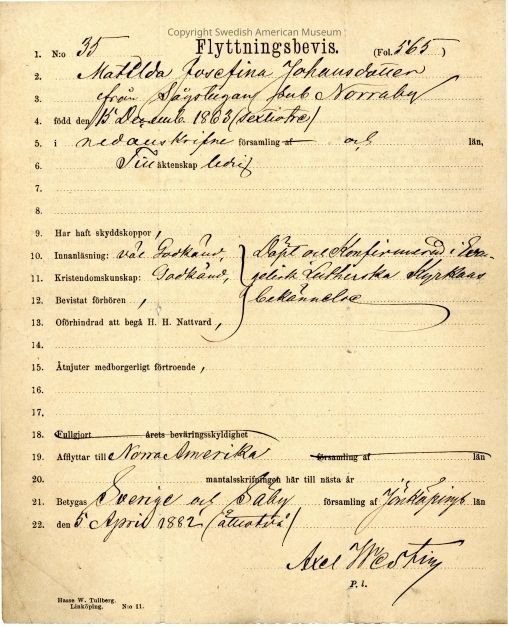 Copyright Swedish American Museum
1. N:o 35 Flyttningsbevis. (Fol. 565)
2. Matilda Josefina Johansdotter
3. från Sågstugan sub Norraby
4. född den 15 Decemb. 1863 (sextiotre)
5. i nedanskrifne församling af och län,
6. Till äktenskap ledig
7.
8.
9. Har haft skyddskoppor,
10. Innanläsning: väl Godkänd, Döpt och Konfirmerad i Evan-
11. Kristendomskunskap: Godkänd, gelisk Lutherska Kyrkans
12. Bevistat förhören, bekännelse
13. Oförhindrad att begå H. H. Nattvard,
14.
15. Åtnjuter medborgerligt förtroende,
16.
17.
18. Fullgjort årets beväringsskyldighet
19. Afflyttar till Norra Amerika församling af län
20. mantalsskrifningen här till nästa år
21. Betygas Sverige och Säby församling af Jönköpings län
22. den 5 April 1882 (åttiotvå)
Axel Westin
P. l.
Hasse W. Tullberg.
Linköping. N:o 11.